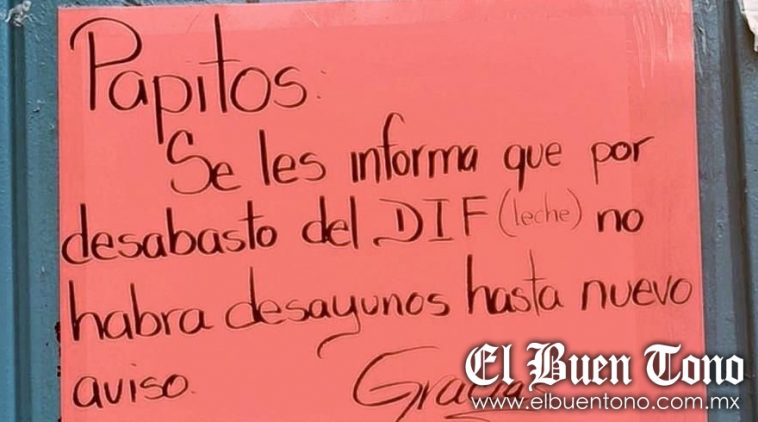 Papitos:
Se les informa que por
desabasto del DIF (leche) no
habra desayunos hasta nuevo
aviso. Gracias
El Buen Tono
www.elbuentono.com.mx